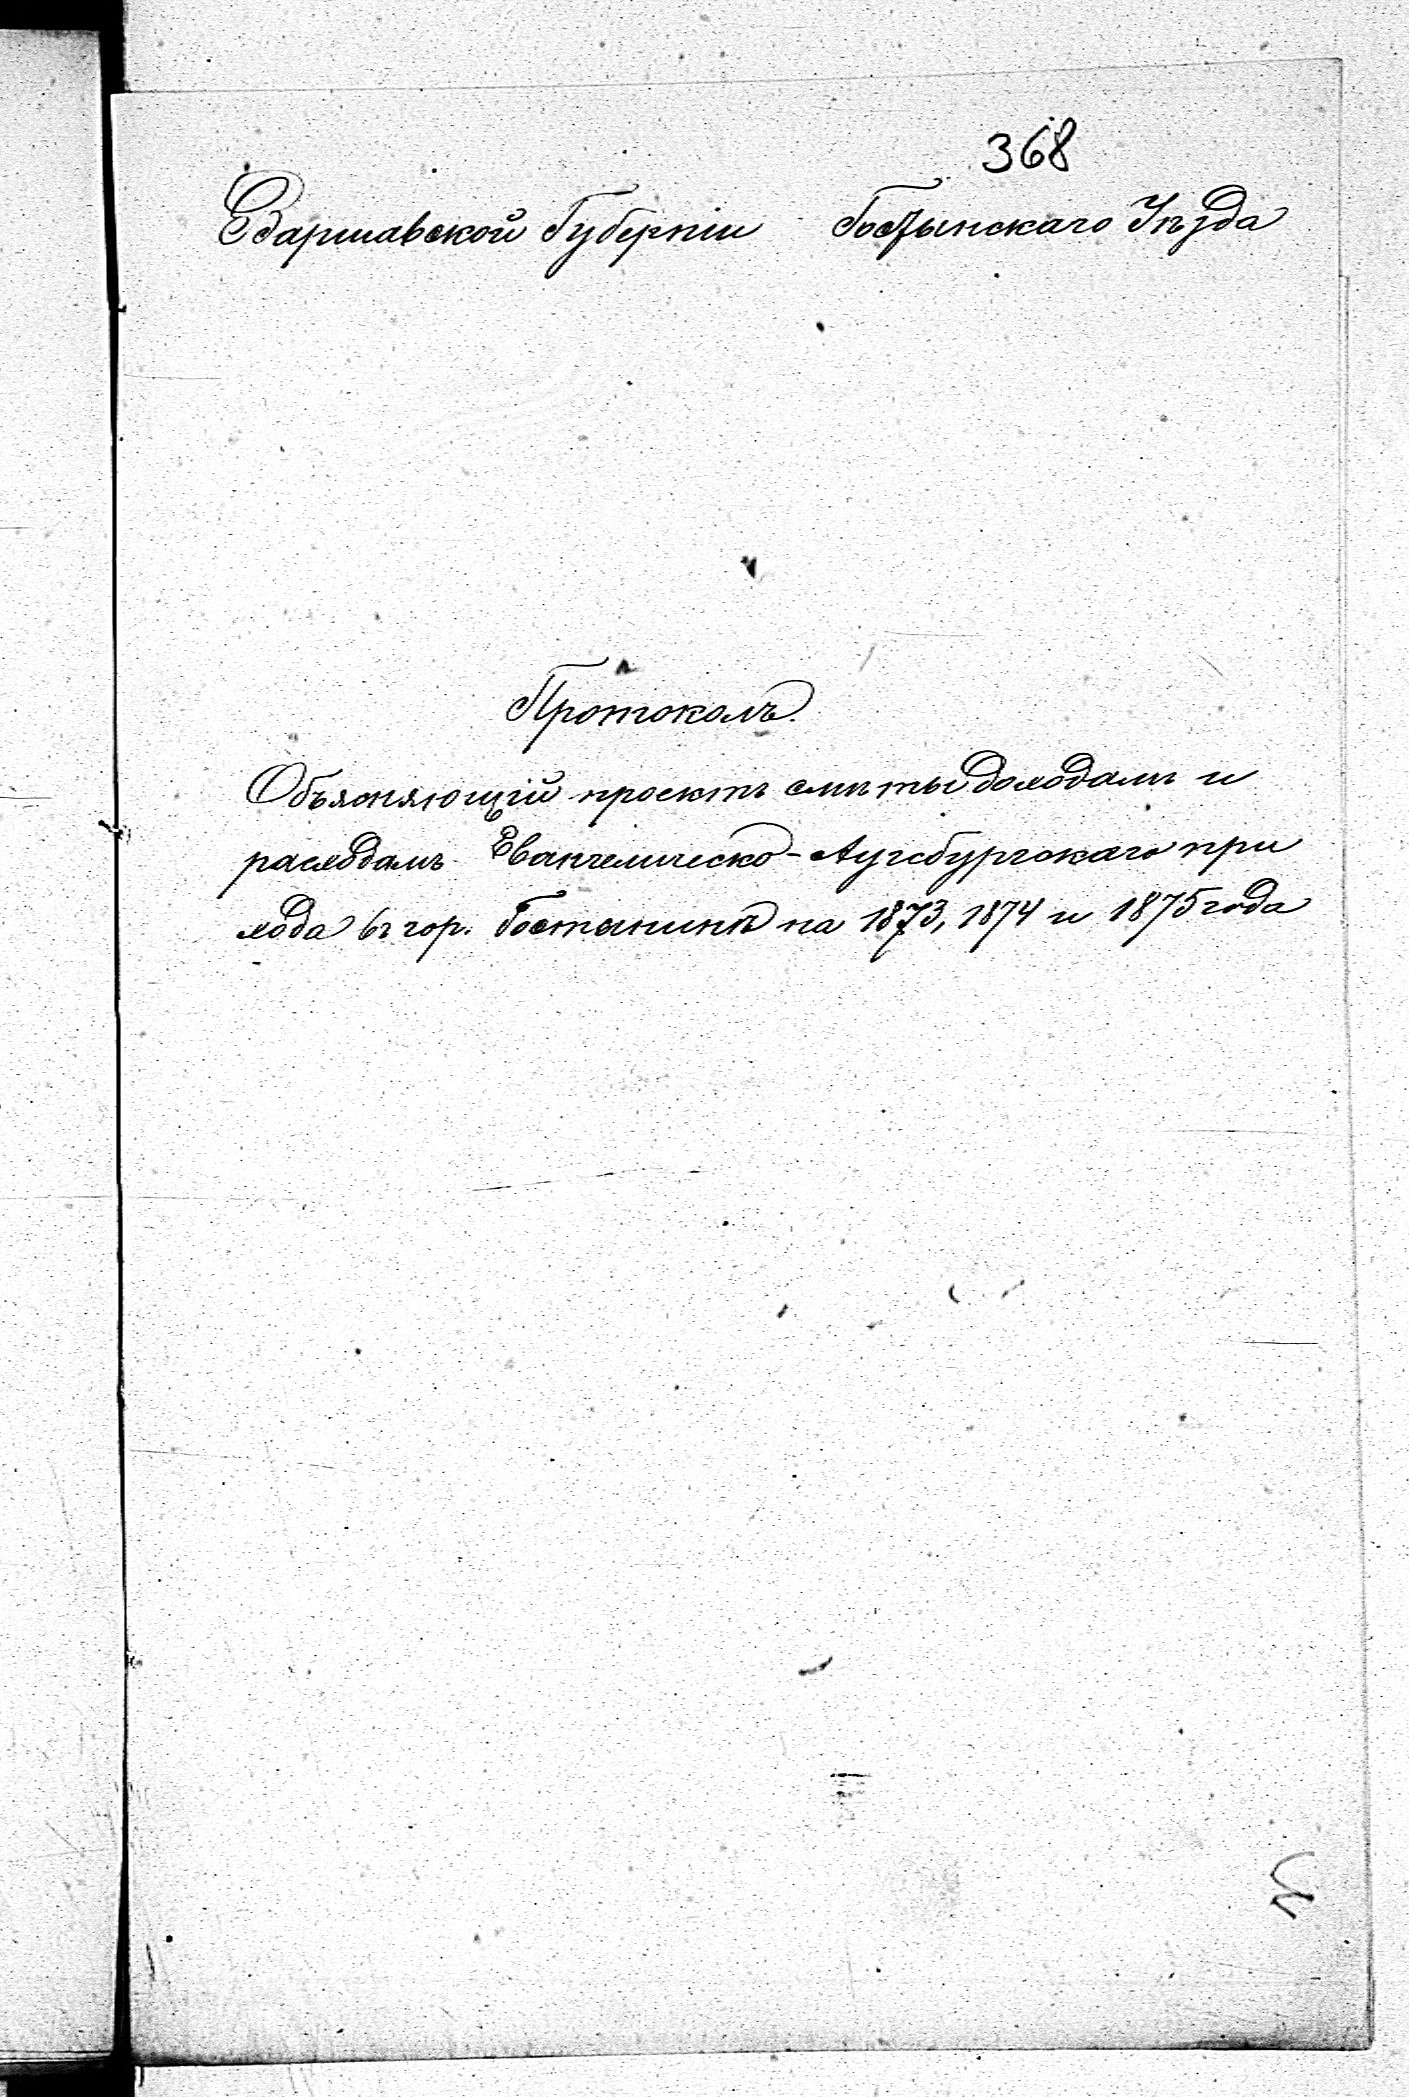 368
Варшавской Губерніи Гостынскаго Уѣзда
Протоколъ.
Объясняющій проектъ смѣты доходамъ и
расходамъ Евангелическо-Аугсбургскаго при
хода въ гор. Гостынинѣ на 1873, 1874 и 1875 года